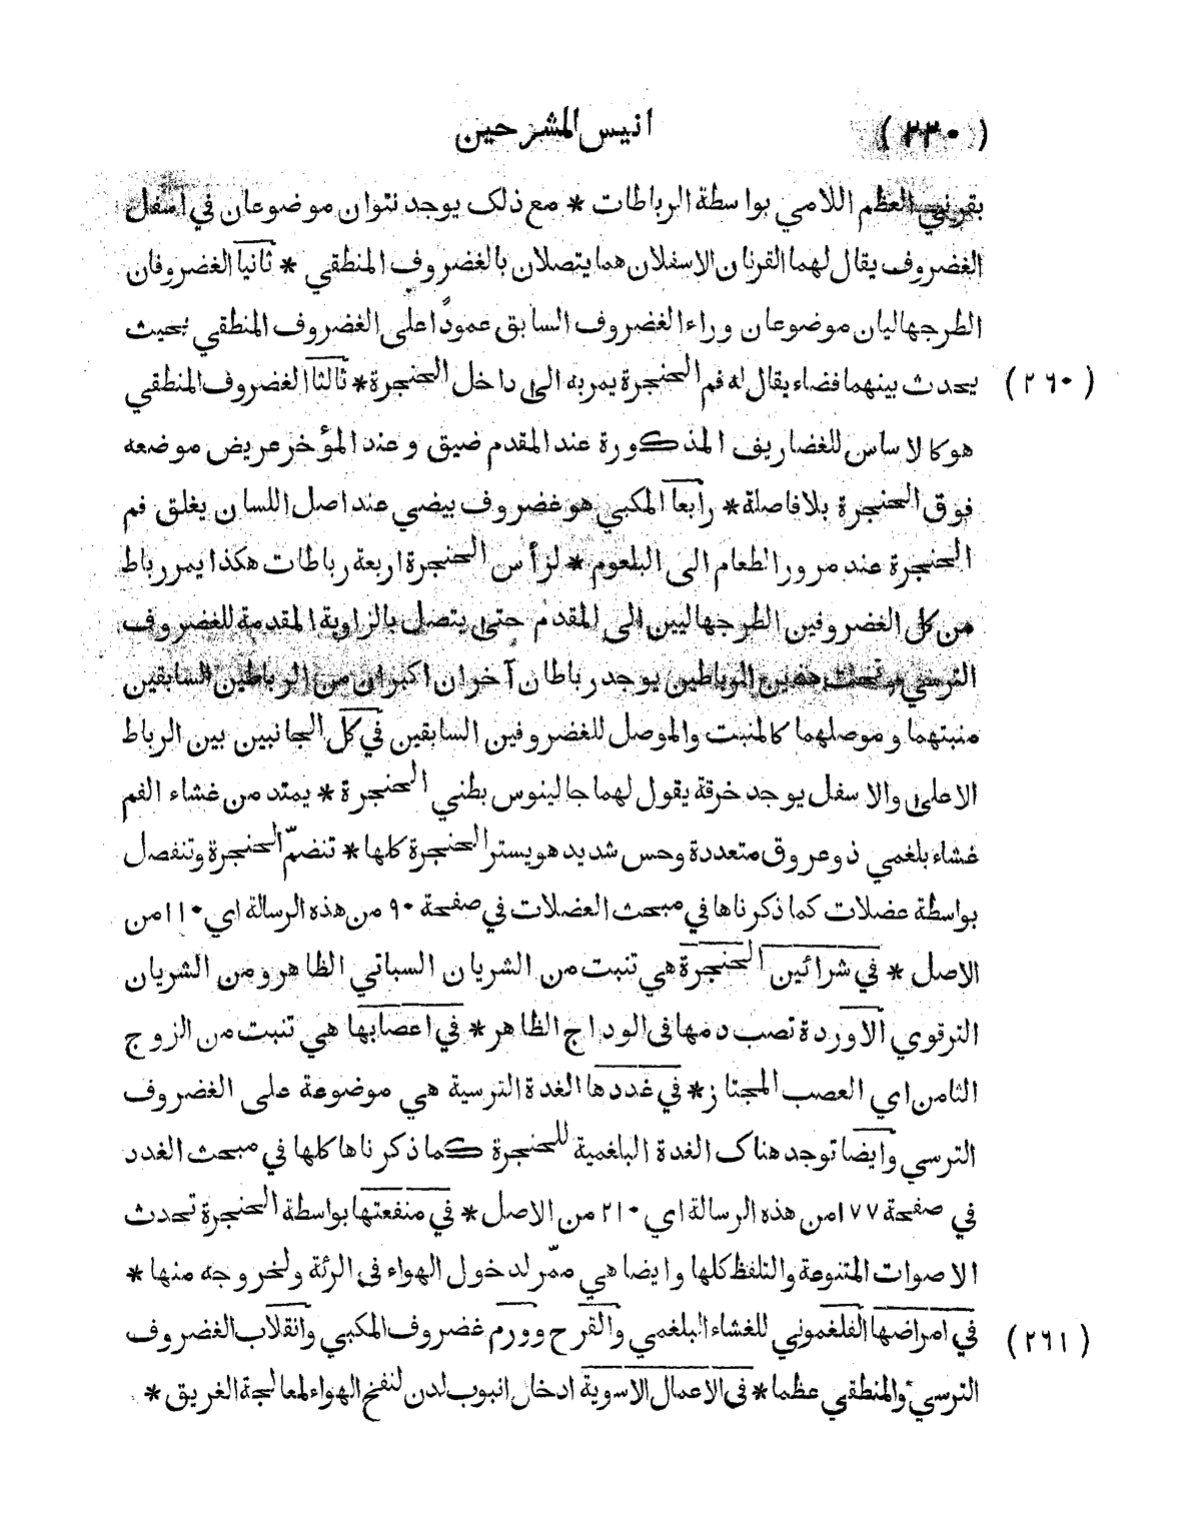 ( ٢٣٠ ) انيس المشرحين
بقرني العظم اللامي بواسطة الرباطات * مع ذلك يوجد نتوان موضوعان في اسفل
الغضروف يقال لهما القرنان الاسفلان هما يتصلان بالغضروف المنطقي * ثانيا الغضروفان
الطرجهاليان موضوعان وراء الغضروف السابق عموداً على الغضروف المنطقي بحيث
( ٢٦٠ ) يحدث بينهما فضاء يقال له فم الحنجرة يمر به الى داخل الحنجرة * ثالثا الغضروف المنطقي
هو كالاساس للغضاريف المذكورة عند المقدم ضيق وعند المؤخر عريض موضعه
فوق الحنجرة بلا فاصلة * رابعا المكبي هو غضروف بيضي عند اصل اللسان يغلق فم
الحنجرة عند مرور الطعام الى البلعوم * لرأس الحنجرة اربعة رباطات هكذا يمر رباط
من كل الغضروفين الطرجهاليين الى المقدم حتى يتصل بالزاوية المقدمة للغضروف
الترسي و تحت هذين الرباطين يوجد رباطان آخران اكبران من الرباطين السابقين
منبتهما و موصلهما كالمنبت والموصل للغضروفين السابقين في كل الجانبين بين الرباط
الاعلى والاسفل يوجد خرقة يقول لهما جالينوس بطني الحنجرة * يمتد من غشاء الفم
غشاء بلغمي ذو عروق متعددة وحس شديد هو يستر الحنجرة كلها * تنضمّ الحنجرة وتنفصل
بواسطة عضلات كما ذكرناها في مبحث العضلات في صفحة ٩٠ من هذه الرسالة اي ١١٠ من
الاصل * في شرائين الحنجرة هي تنبت من الشريان السباتي الظاهر ومن الشريان
الترقوي الاوردة تصب دمها في الوداج الظاهر * في اعصابها هي تنبت من الزوج
الثامن اي العصب المجتاز * في غددها الغدة الترسية هي موضوعة على الغضروف
الترسي وايضا توجد هناك الغدة البلغمية للحنجرة كما ذكرناها كلها في مبحث الغدد
في صفحة ١٧٧ من هذه الرسالة اي ٢١٠ من الاصل * في منفعتها بواسطة الحنجرة تحدث
الاصوات المتنوعة والتلفظ كلها وايضا هي ممّر لدخول الهواء في الرئة ولخروجه منها *
( ٢٦١ ) في امراضها الفلغموني للغشاء البلغمي والقرح وورم غضروف المكبي وانقلاب الغضروف
الترسي والمنطقي عظما * في الاعمال الاسوية ادخال انبوب لدن لنفخ الهواء لمعالجة الغريق *